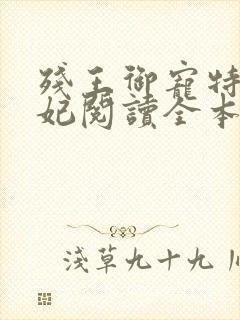 殘王御寵特
妃閱讀全本
淺草九十九